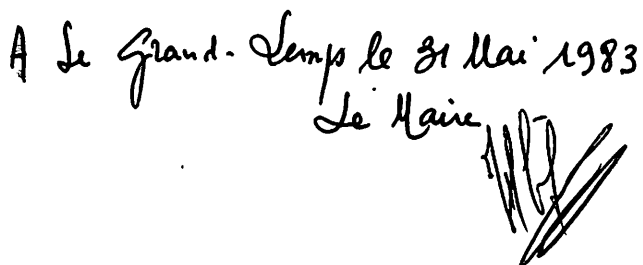 A Le Grand-Lemps le 31 Mai 1983
Le Maire